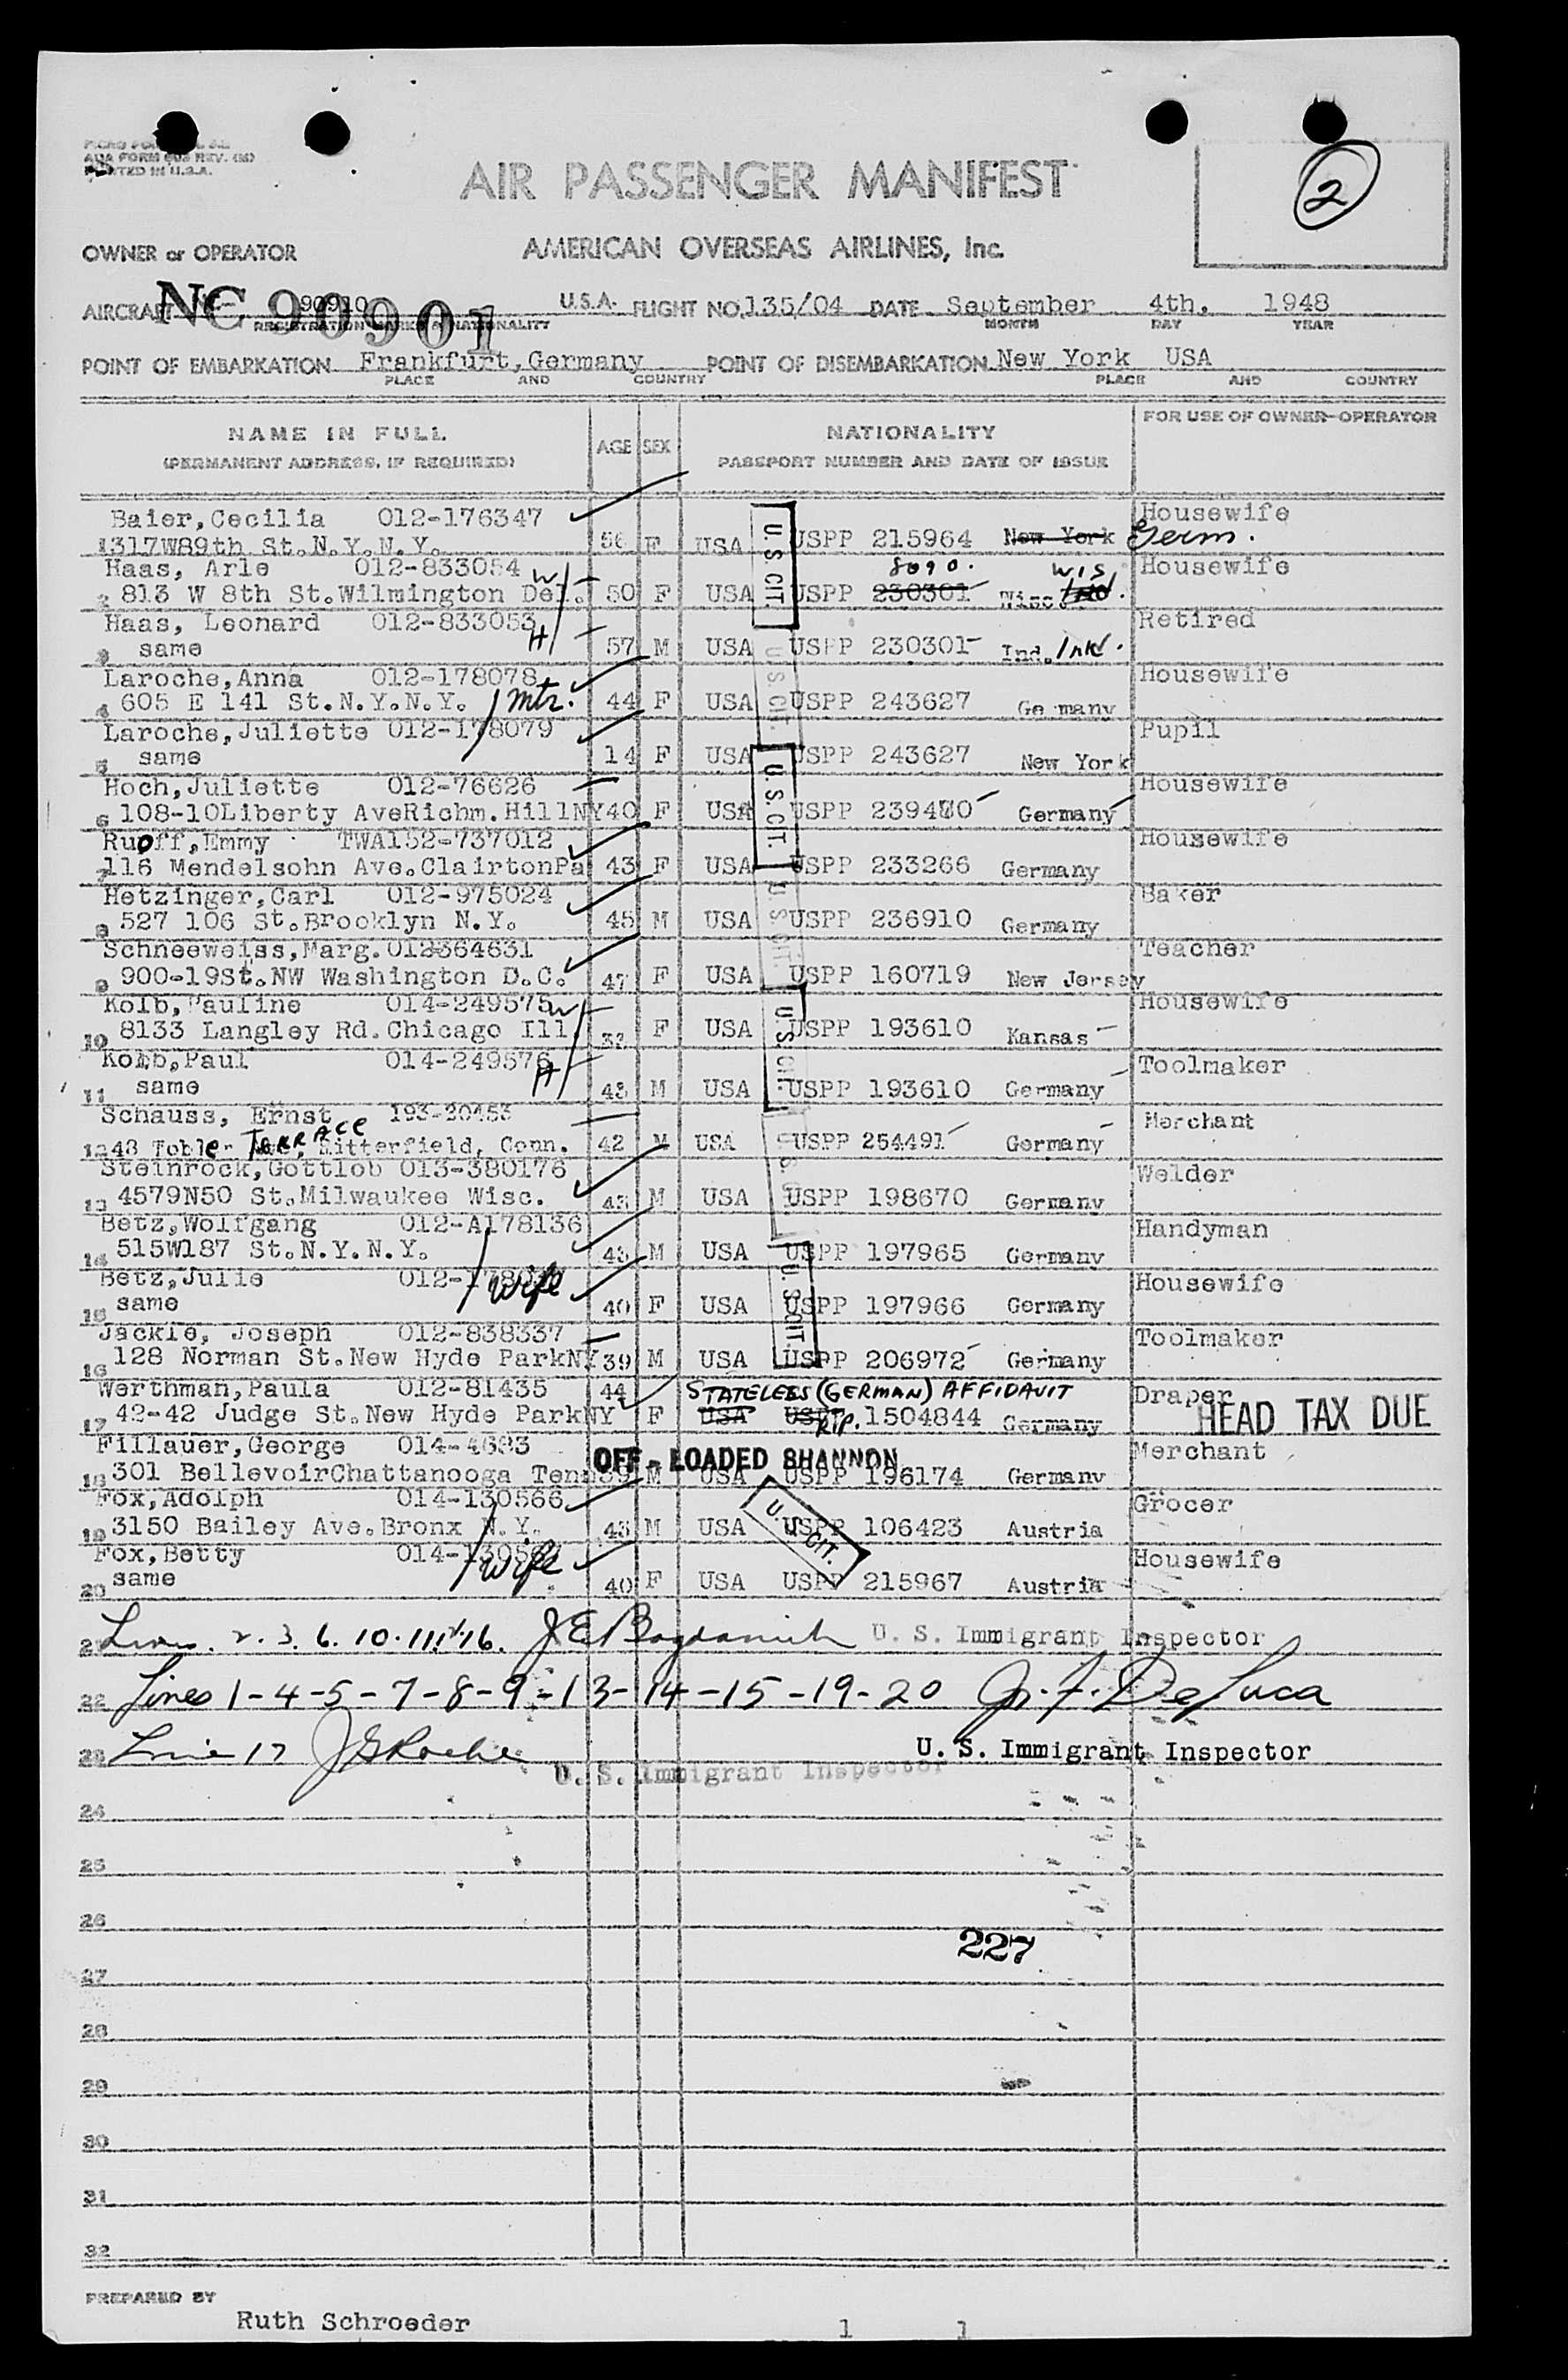 AOA FORM 603 REV. (M)
PRINTED IN U.S.A.
2
AIR PASSENGER MANIFEST
AMERICAN OVERSEAS AIRLINES, Inc.
OWNER or OPERATOR
AIRCRAFT NC 90901 90910 U.S.A. FLIGHT NO. 135/04 DATE September 4th, 1948
REGISTRATION MARKS & NATIONALITY MONTH DAY YEAR
POINT OF EMBARKATION Frankfurt, Germany POINT OF DISEMBARKATION New York USA
PLACE AND COUNTRY PLACE AND COUNTRY
NAME IN FULL AGE SEX NATIONALITY FOR USE OF OWNER-OPERATOR
(PERMANENT ADDRESS, IF REQUIRED) PASSPORT NUMBER AND DATE OF ISSUE
Baier,Cecilia 012-176347 Housewife
1 317W89th St.N.Y.N.Y. 56 F USA U.S. CIT. USPP 215964 New York Germ.
Haas, Arle 012-833054 W 8090. Wis Housewife
2 813 W 8th St.Wilmington Del. 50 F USA USPP 230301 Wisc.
Haas, Leonard 012-833053 H Retired
3 same 57 M USA U.S. CIT. USPP 230301 Ind. Ind.
Laroche,Anna 012-178078 Housewife
4 605 E 141 St.N.Y.N.Y. Mtr. 44 F USA USPP 243627 Germany
Laroche,Juliette 012-178079 Pupil
5 same 14 F USA U.S. CIT. USPP 243627 New York
Hoch,Juliette 012-76626 Housewife
6 108-10Liberty AveRichm.HillNY 40 F USA USPP 239480 Germany
Ruoff,Emmy TWA152-737012 Housewife
7 116 Mendelsohn Ave.ClairtonPa 43 F USA U.S. CIT. USPP 233266 Germany
Hetzinger,Carl 012-975024 Baker
8 527 106 St.Brooklyn N.Y. 45 M USA USPP 236910 Germany
Schneeweiss,Marg. 012364631 Teacher
9 900-19St.NW Washington D.C. 47 F USA USPP 160719 New Jersey
Kolb,Pauline 014-249575 W Housewife
10 8133 Langley Rd.Chicago Ill. F USA U.S. CIT. USPP 193610 Kansas
Kolb,Paul 014-249576 H Toolmaker
11 same 43 M USA USPP 193610 Germany
Schauss, Ernst 193-20453 Merchant
12 48 Tobler Terrace, Bitterfield, Conn. 42 M USA U.S. USPP 254491 Germany
Steinrock,Gottlob 013-380176 Welder
13 4579N50 St.Milwaukee Wisc. 43 M USA USPP 198670 Germany
Betz,Wolfgang 012-A178136 Handyman
14 515W187 St.N.Y.N.Y. 43 M USA USPP 197965 Germany
Betz,Julie Wife Housewife
15 same 40 F USA U.S. CIT. USPP 197966 Germany
Jackle, Joseph 012-838337 Toolmaker
16 128 Norman St.New Hyde ParkNY 39 M USA USPP 206972 Germany
Werthman,Paula 012-81435 44 STATELESS (GERMAN) AFFIDAVIT Draper
17 42-42 Judge St.New Hyde ParkNY F USA USPP R.P. 1504844 Germany HEAD TAX DUE
Fillauer,George 014-4683 OFF-LOADED SHANNON Merchant
18 301 BellevoirChattanooga Tenn 39 M USA USPP 196174 Germany
Fox,Adolph 014-130566 Grocer
19 3150 Bailey Ave.Bronx N.Y. 43 M USA U.S. CIT. USPP 106423 Austria
Fox,Betty Wife Housewife
20 same 40 F USA USPP 215967 Austria
21 Lines. 2. 3. 6. 10. 11. 12. 16. J E Bogdanich U. S. Immigrant Inspector
22 Lines 1-4-5-7-8-9-13-14-15-19-20 De Luca
23 Line 17 J G Roche U. S. Immigrant Inspector
U. S. Immigrant Inspector
24
25
26
227
27
28
29
30
31
32
PREPARED BY
Ruth Schroeder 1 1